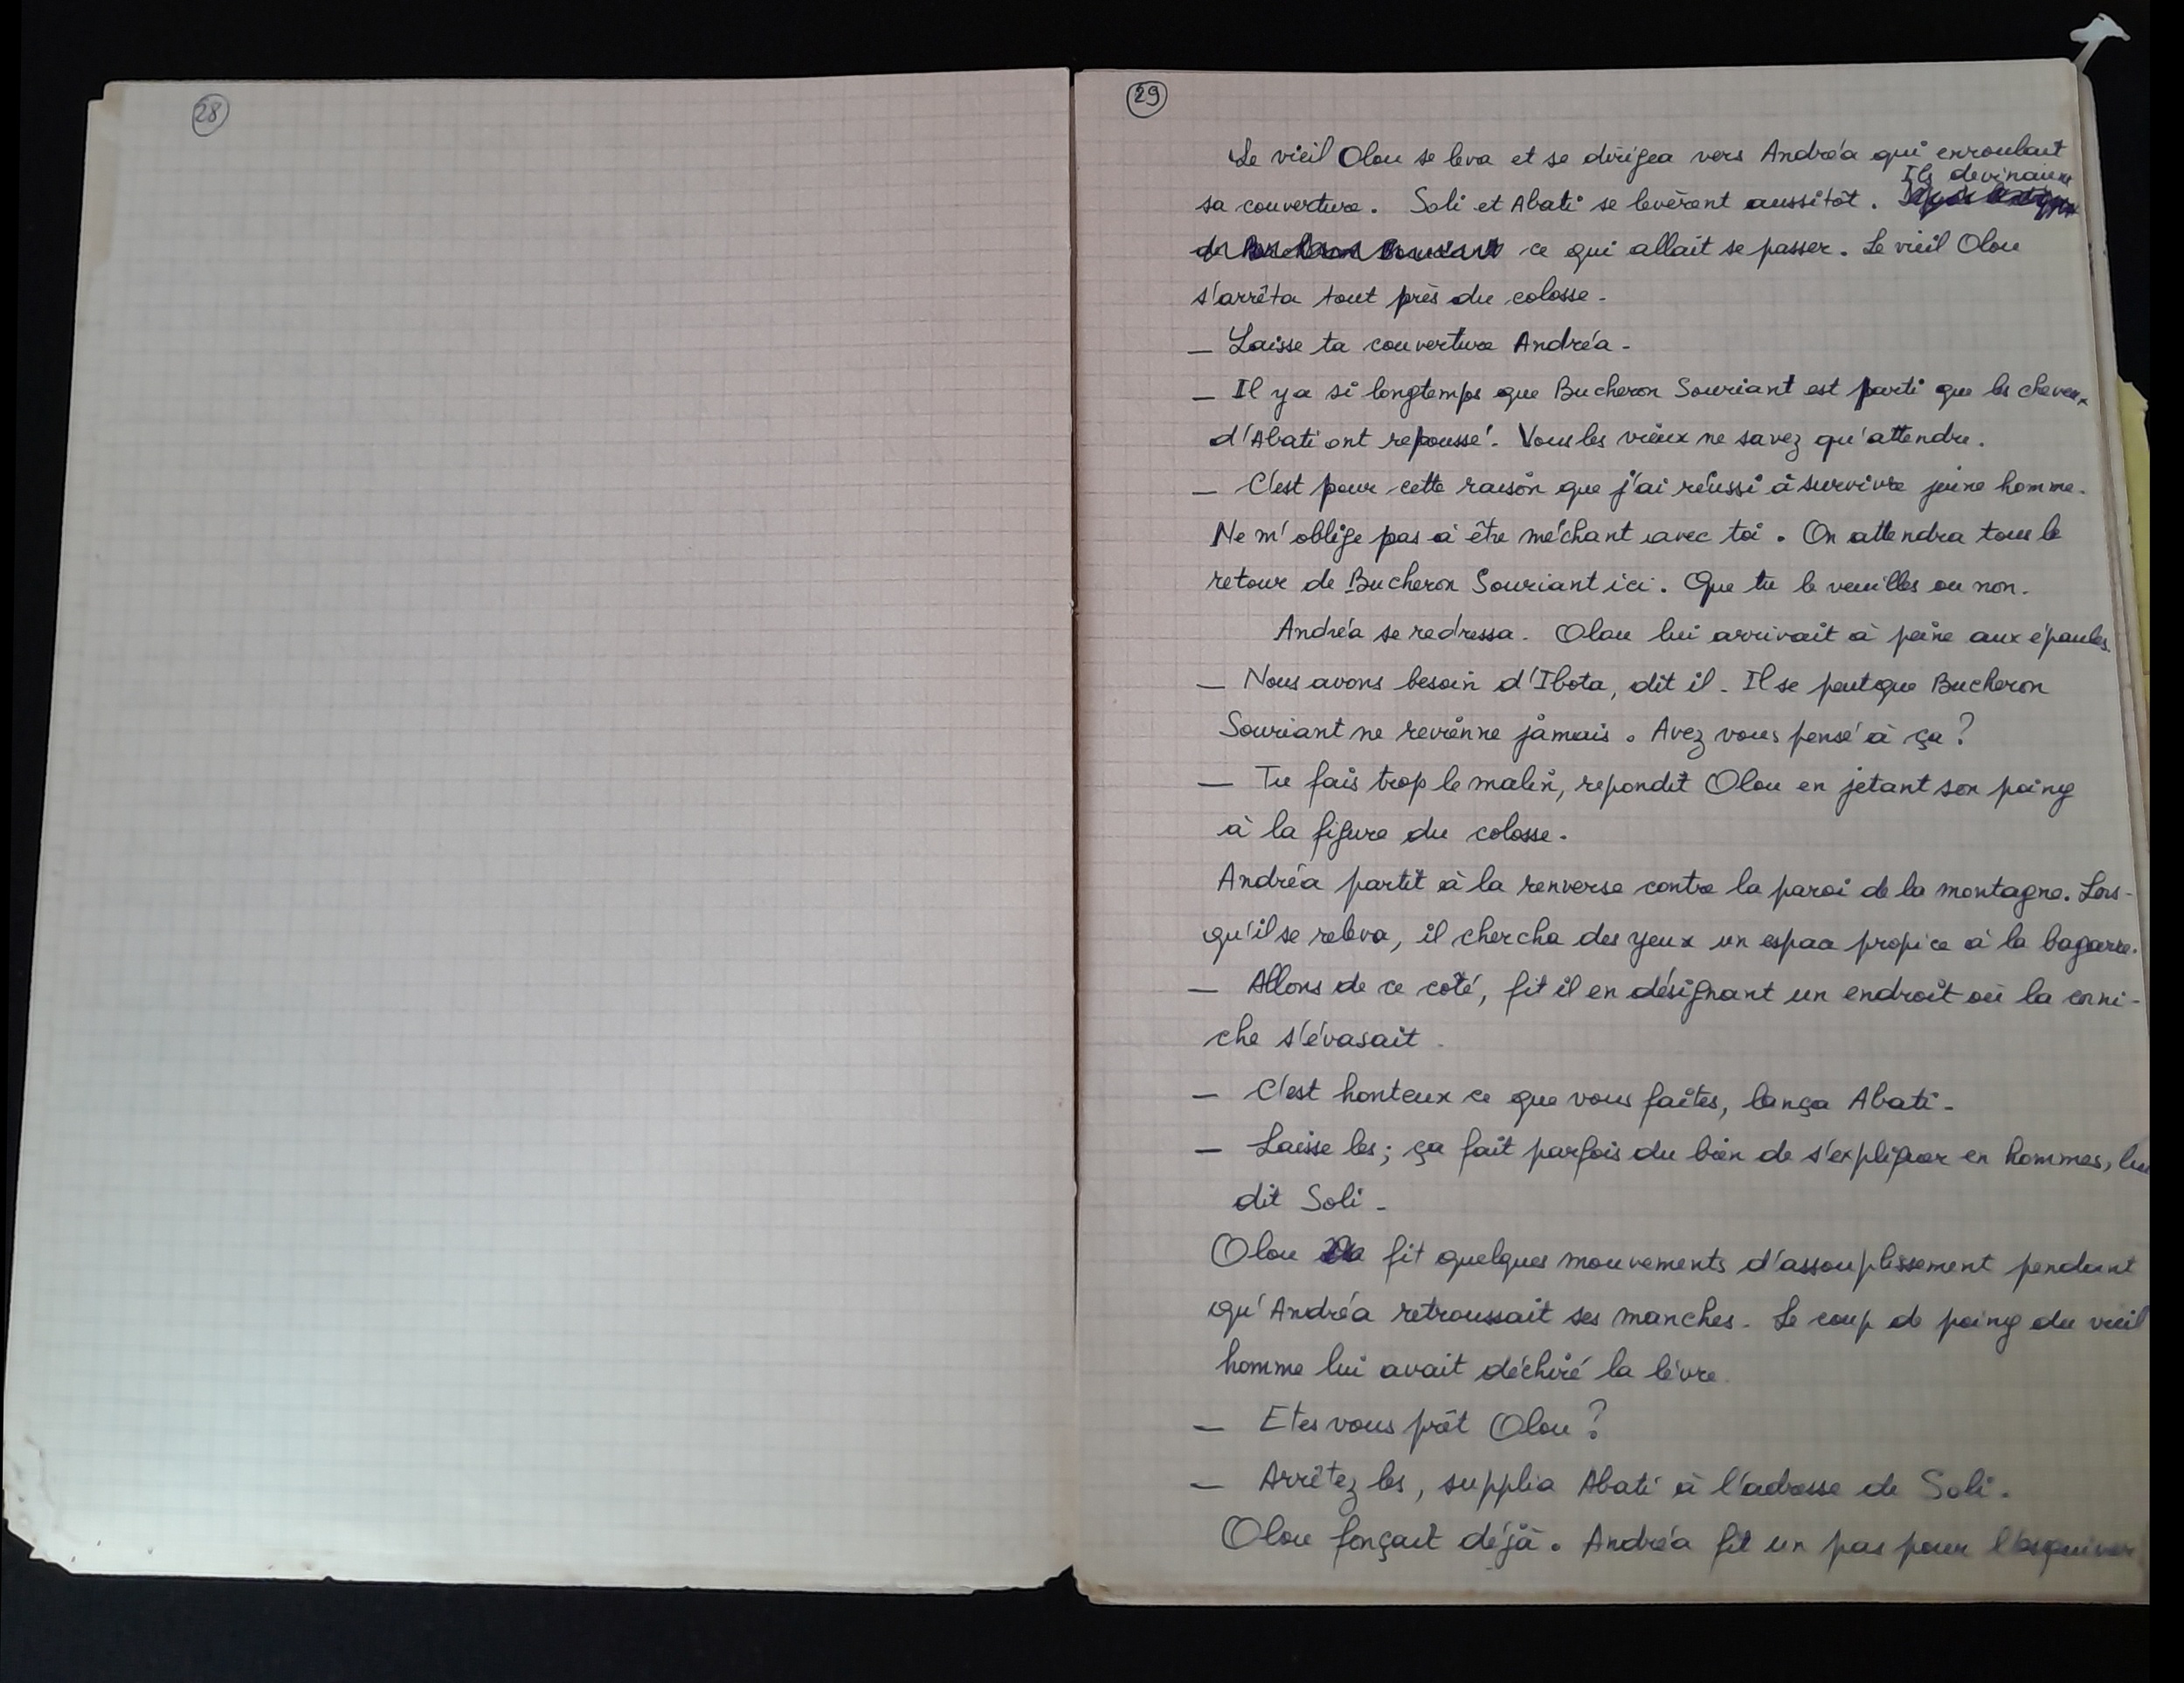 28
29
Le vieil Olou se leva et se dirigea vers Andréa qui enroulait
Ils devinaient
sa couverture. Soli et Abati se levèrent aussitôt.
ce qui allait se passer. Le vieil Olou
s'arrêta tout près du colosse.
_ Laisse ta couverture Andréa.
_ Il y a si longtemps que Bucheron Souriant est parti que les cheveux
d'Abati ont repoussé. Vous les vieux ne savez qu'attendre.
_ C'est pour cette raison que j'ai réussi à survivre jeune homme.
Ne m'oblige pas à être méchant avec toi. On attendra tous le
retour de Bucheron Souriant ici. Que tu le veuilles ou non.
Andréa se redressa. Olou lui arrivait à peine aux épaules.
_ Nous avons besoin d'Ibota, dit il. Il se peut que Bucheron
Souriant ne revienne jamais. Avez vous pensé à ça ?
_ Tu fais trop le malin, repondit Olou en jetant son poing
à la figure du colosse.
Andréa partit à la renverse contre la paroi de la montagne. Lors-
qu'il se releva, il chercha des yeux un espace propice à la bagarre.
_ Allons de ce coté, fit il en désignant un endroit où la corni-
che s'évasait.
_ C'est honteux ce que vous faites, lança Abati.
_ Laisse les ; ça fait parfois du bien de s'expliquer en hommes, lui
dit Soli.
Olou fit quelques mouvements d'assouplissement pendant
qu'Andréa retroussait ses manches. Le coup de poing du vieil
homme lui avait déchiré la lèvre.
_ Etes vous prêt Olou ?
_ Arrêtez les, supplia Abati à l'adresse de Soli.
Olou fonçait déjà. Andréa fit un pas pour l'esquiver